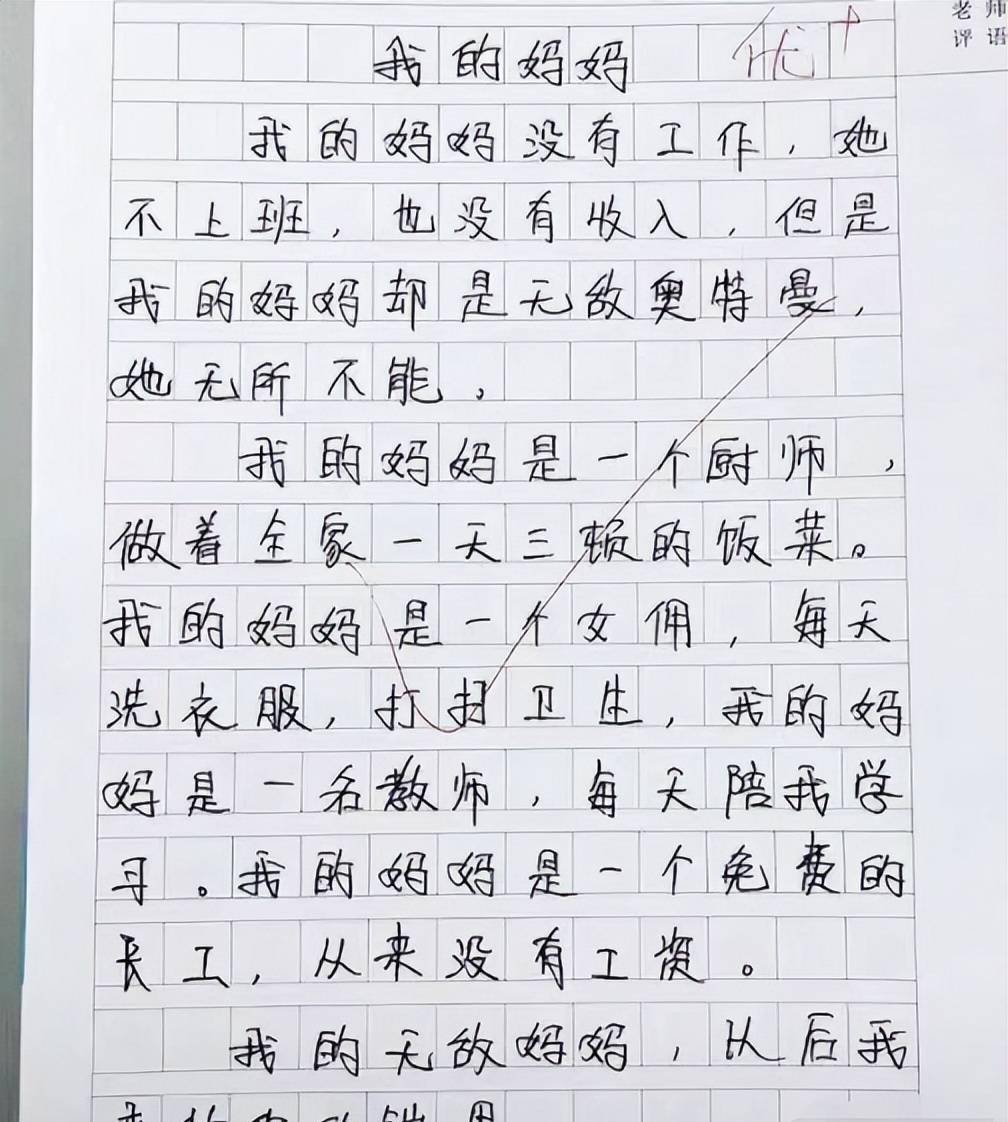 老师
评语
我的妈妈 优+
我的妈妈没有工作,她
不上班,也没有收入,但是
我的妈妈却是无敌奥特曼,
她无所不能,
我的妈妈是一个厨师,
做着全家一天三顿的饭菜。
我的妈妈是一个女佣,每天
洗衣服,打扫卫生,我的妈
妈是一名教师,每天陪我学
习。我的妈妈是一个免费的
长工,从来没有工资。
我的无敌妈妈,以后我